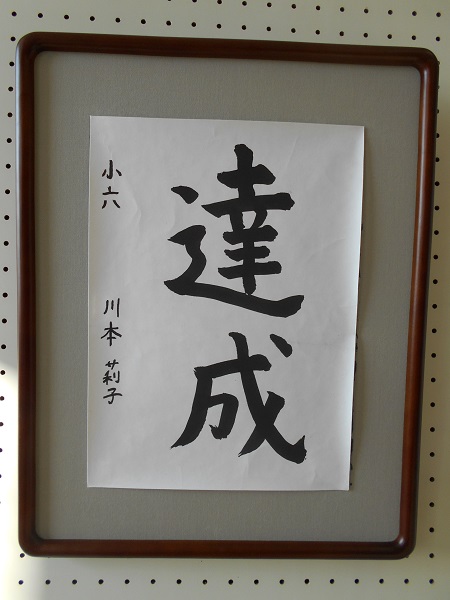 達成
小六 川本莉子